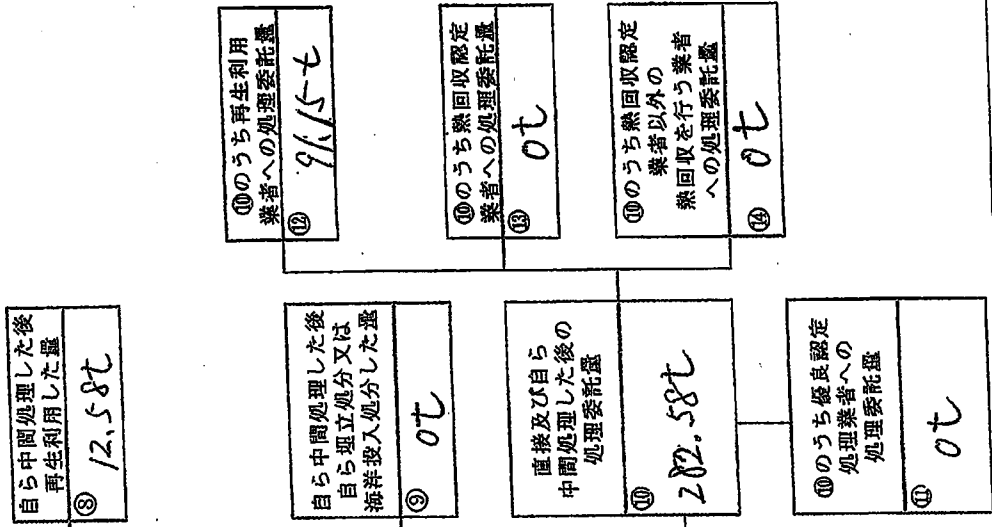 自ら中間処理した後
再生利用した量
⑧
12.58t
自ら中間処理した後
自ら埋立処分又は
海洋投入処分した量
⑨
0t
直接及び自ら
中間処理した後の
処理委託量
⑩
282.58t
⑩のうち優良認定
処理業者への
処理委託量
⑪
0t
⑩のうち再生利用
業者への処理委託量
⑫
91.15t
⑩のうち熱回収認定
業者への処理委託量
⑬
0t
⑩のうち熱回収認定
業者以外の
熱回収を行う業者
への処理委託量
⑭
0t